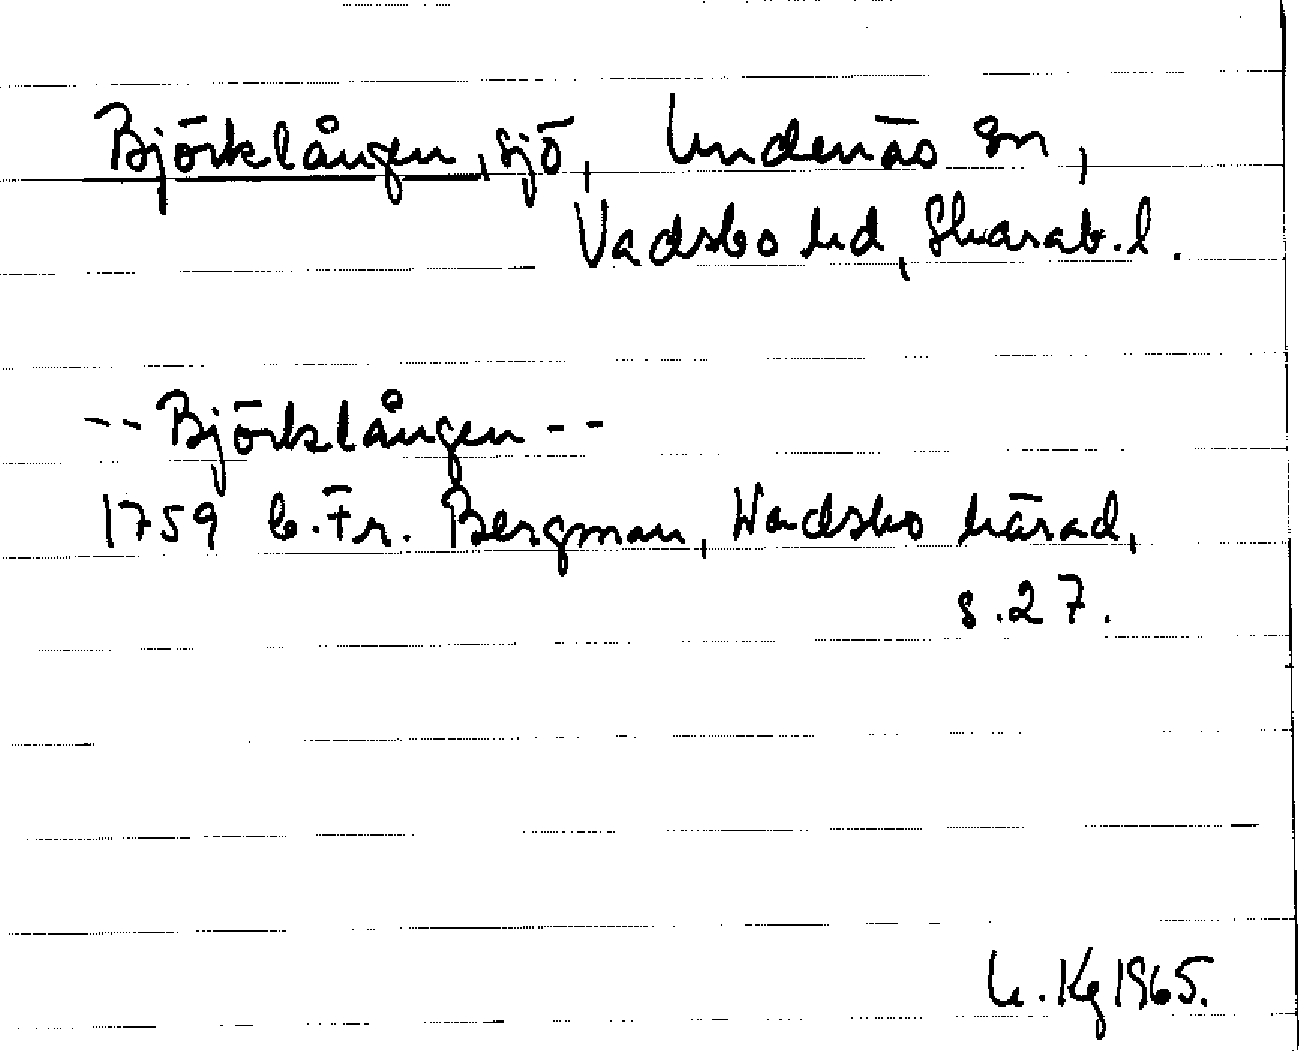 Björklången, sjö, Undenäs sn,
Vadsbo hd, Skarab.l.
-- Björklången --
1759 C.Fr. Bergman, Wadsbo härad,
s.27.
L. Kg 1965.